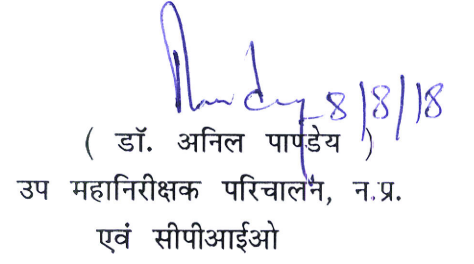 8/8/18
( डॉ. अनिल पाण्डेय )
उप महानिरीक्षक परिचालन, न.प्र.
एवं सीपीआईओ